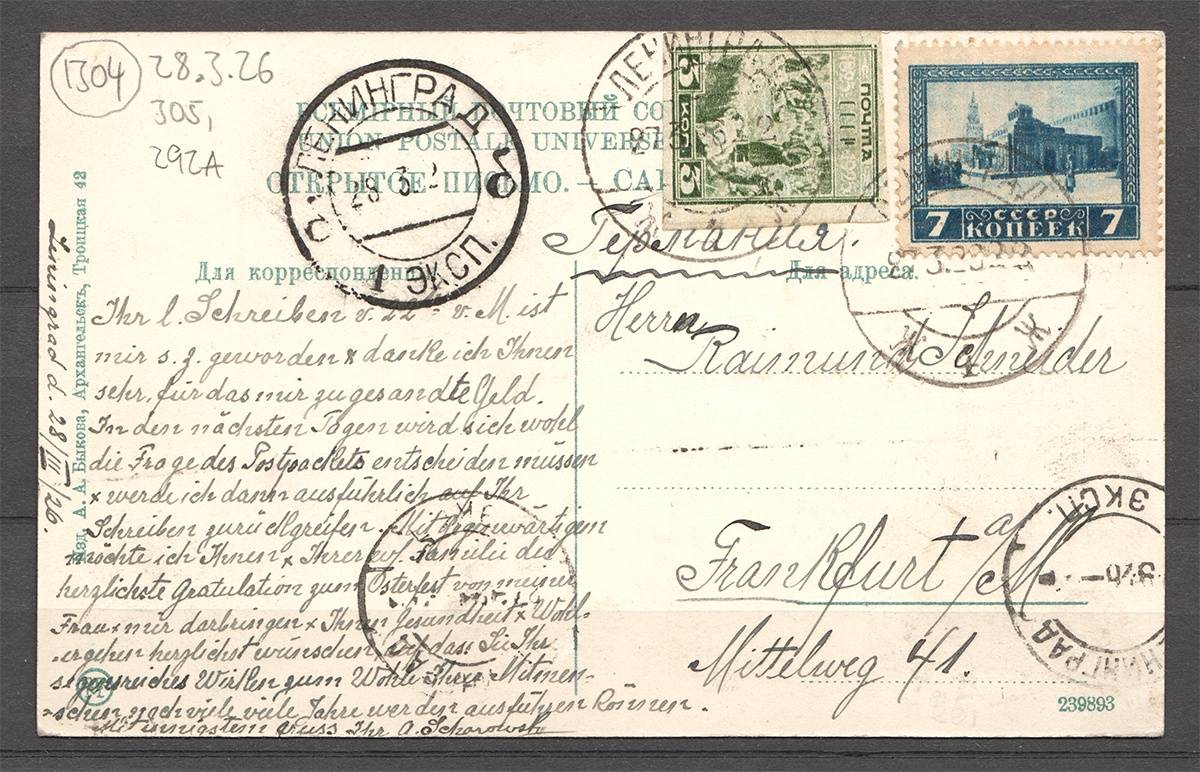 1304
28.3.26
305,
292A
ВСЕМIРНЫЙ ПОЧТОВЫЙ СО
UNION POSTALE UNIVERS
ОТКРЫТОЕ ПИСЬМО. — CA
ЛЕНИНГРАД
28 3 2
1 ЭКСП.
ЛЕНИНГРАД
5 КОП 5
ПОЧТА
СССР
7 КОПЕЕК 7
Германия.
Для корреспонденц
Для адреса.
Ihr l. Schreiben v. 22 - v. M. ist
mir s. Z. geworden & danke ich Ihnen
sehr, für das mir zugesandte Geld.
In den nächsten Tagen wird sich wohl
die Frage des Postpackets entscheiden müssen
& werde ich dann ausführlich auf Ihr
Schreiben zurückgreifen. Mit Gegenwärtigen
möchte ich Ihnen & Ihrer Familie die
herzlichste Gratulation zum Osterfest von meiner
Frau & mir darbringen & Ihnen Gesundheit & Wohl-
ergehen herzlichst wünschen, dass Sie Ihr
segensreiches Wirken zum Wohle Ihrer Mitmen-
schen noch viele viele Jahre werden ausführen können.
Mit innigstem Gruss Ihr
Herrn
Raimund Schneider
Frankfurt a/M.
Mittelweg 41.
239893
ЭКСП.
НИНГРАД
Leningrad d. 28/III/26.
Изд. А. А. Быкова, Архангельскъ, Троицкая 42